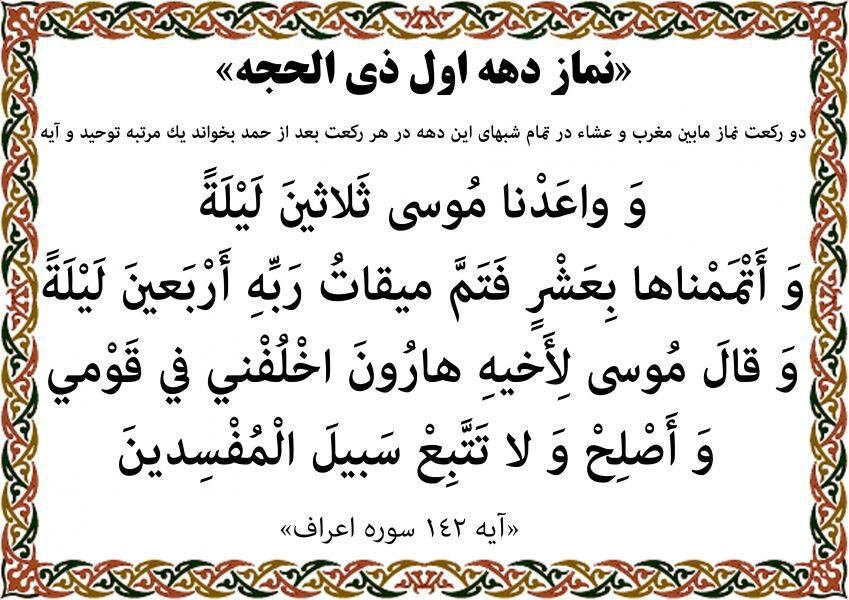 «نماز دهه اول ذی الحجه»
دو ركعت نماز مابين مغرب و عشاء در تمام شبهای اين دهه در هر ركعت بعد از حمد بخواند يك مرتبه توحيد و آيه
وَ واعَدْنا مُوسى ثَلاثينَ لَيْلَةً
وَ أَتْمَمْناها بِعَشْرٍ فَتَمَّ ميقاتُ رَبِّهِ أَرْبَعينَ لَيْلَةً
وَ قالَ مُوسى لِأَخيهِ هارُونَ اخْلُفْني في قَوْمي
وَ أَصْلِحْ وَ لا تَتَّبِعْ سَبيلَ الْمُفْسِدينَ
«آیه ١٤٢ سوره اعراف»